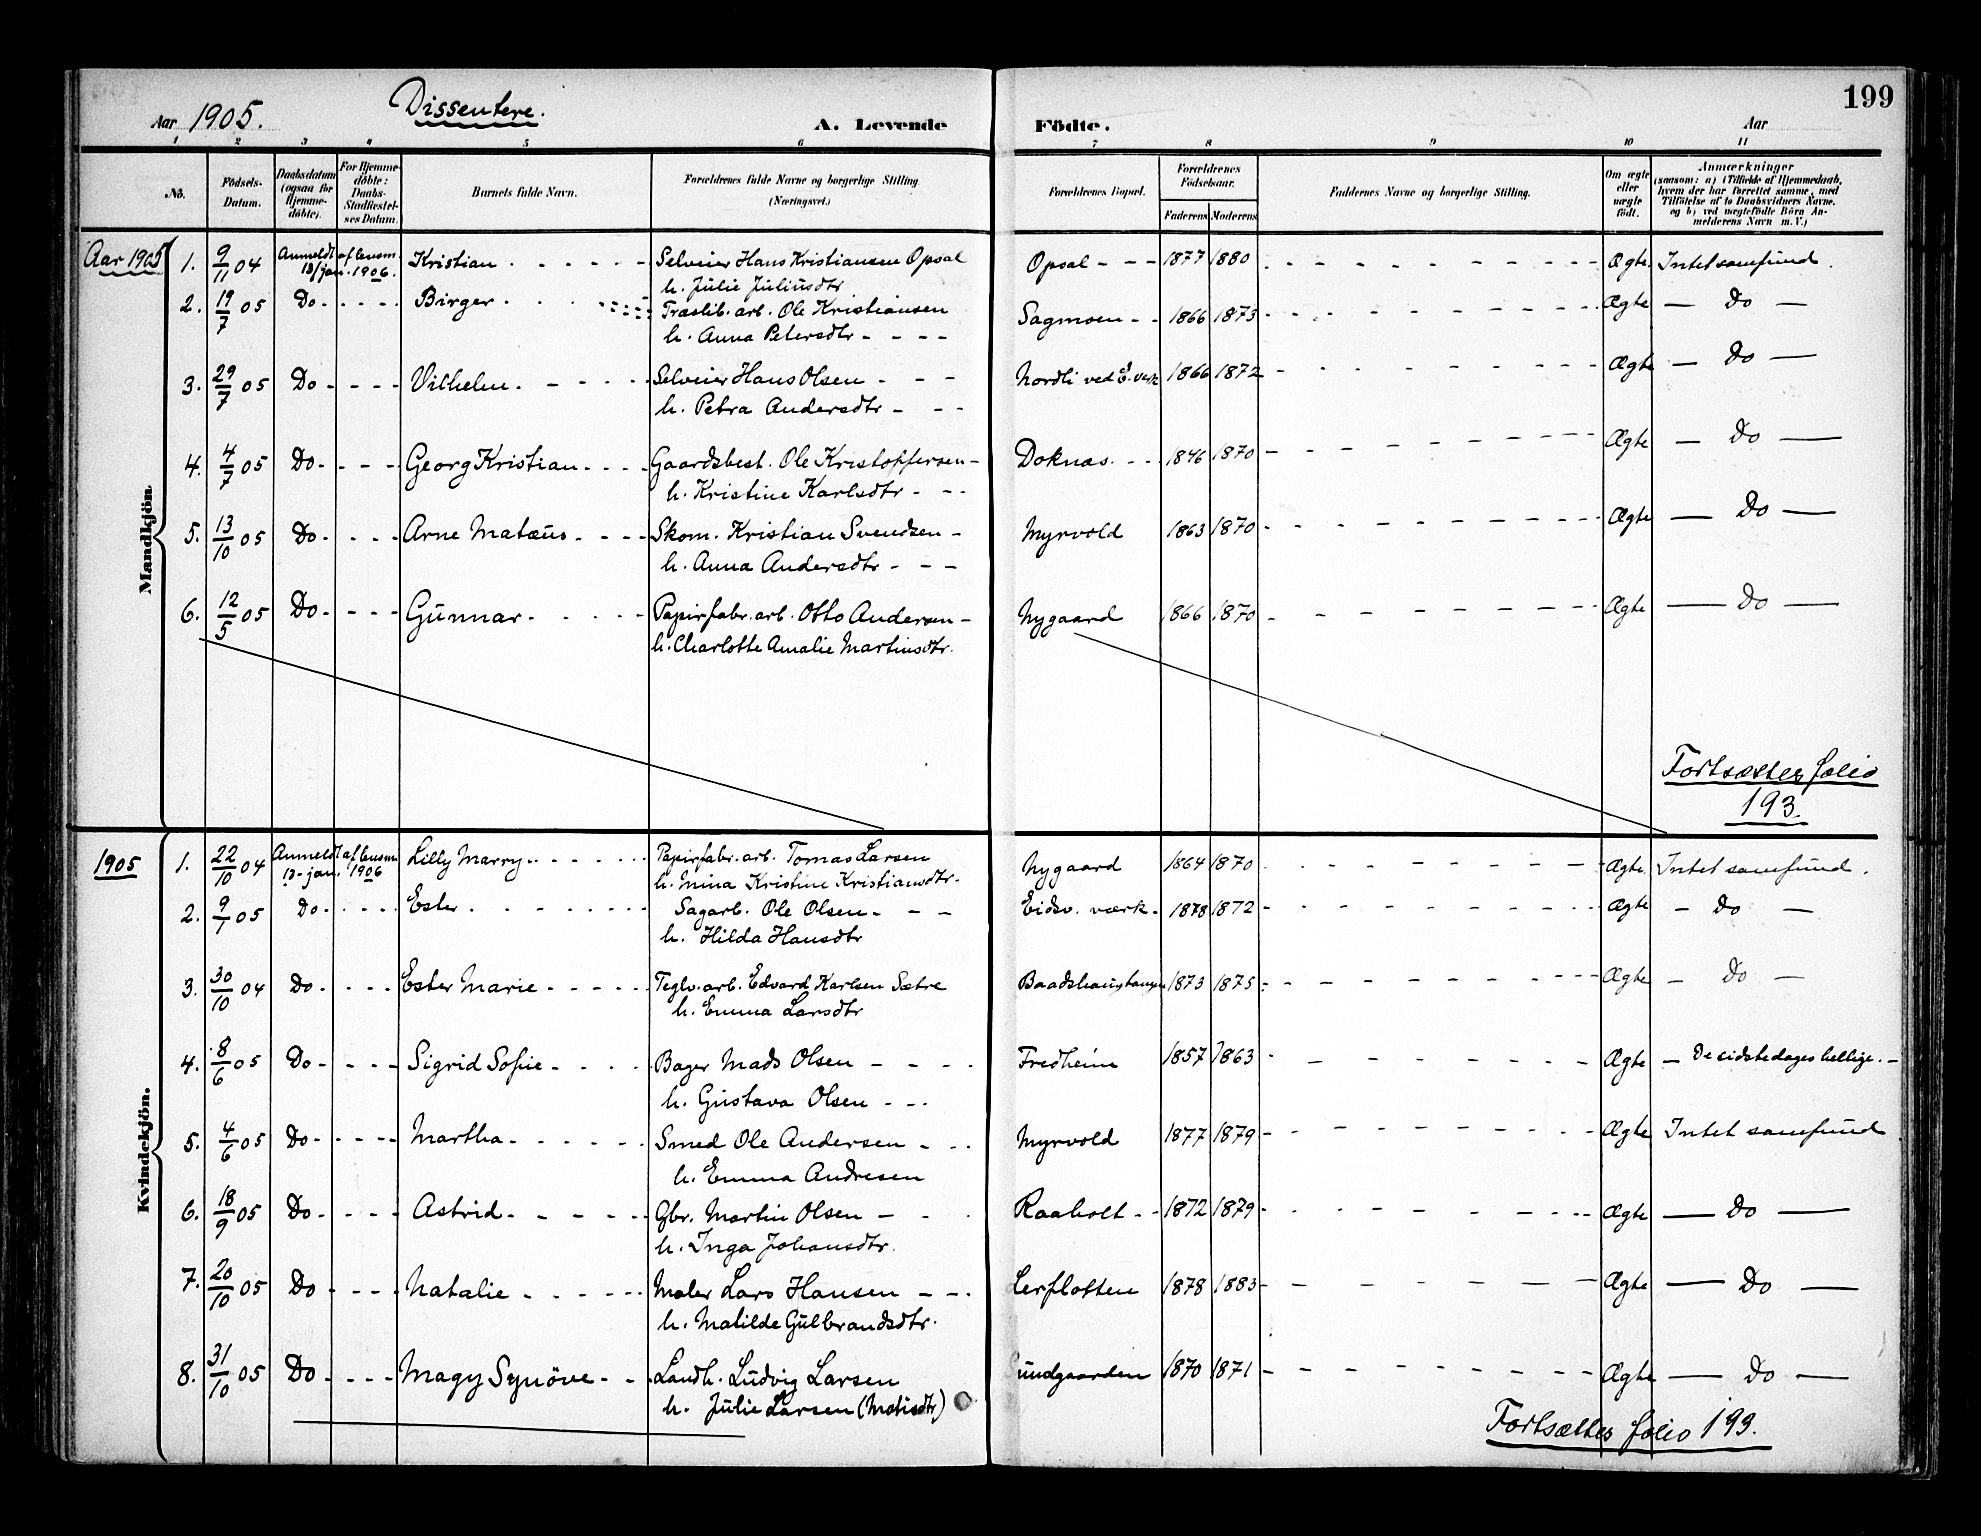 199
Aar 1905. Dissentere. A. Levende Födte. Aar
1 2 3 4 5 6 7 8 9 10 11
No. Födsels-Datum. Daabsdatum (ogsaa for Hjemme-döbte). For Hjemme-döbte: Daabs-Stadfæstel-ses Datum. Barnets fulde Navn. Forældrenes fulde Navne og borgerlige Stilling (Næringsvei.) Forældrenes Bopæl. Forældrenes Födselsaar. Faderens Moderens Faddernes Navne og borgerlige Stilling. Om ægte eller uægte födt. Anmærkninger (saasom: a) i Tilfælde af Hjemmedaab, hvem der har forrettet samme, med Tilföielse af to Daabsvidners Navne. og b) ved uægtefödte Börn An-melderens Navn m. V.)
Mandkjön.
Aar 1905 1. 9/11 04 Anmeldt af lensm. 13/jan. 1906. Kristian - - - - - Selveier Hans Kristiansen Opsal Opsal - - - 1877 1880 - - - - - Ægte Intet samfund.
h. Julie Juliusdtr
2. 19/7 05 Do - - - - Birger - - - Træslib. arb. Ole Kristiansen Sagmoen - - 1866 1873 - - - - - Ægte — Do —
h. Anna Petersdtr - - - -
3. 29/7 05 Do - - - - Vilhelm - - - - - Selveier Hans Olsen - - - Nordli ved E. verk 1866 1872 - - - - - Ægte — Do —
h. Petra Andersdtr - - -
4. 4/7 05 Do - - - - Georg Kristian - - - - Gaardsbest. Ole Kristoffersen - Doknæs - - - 1846 1870 - - - - - Ægte — Do —
h. Kristine Karlsdtr - - -
5. 13/10 05 Do - - - - Arne Matæus - - - - Skom. Kristian Svendsen - Myrvold 1863 1870 - - - - - Ægte — Do —
h. Anna Andersdtr - - -
6. 12/5 05 Do - - - - Gunnar - - - - - Papirfabr. arb. Otto Andersen - Nygaard 1866 1870 - - - - - Ægte — Do —
h. Charlotte Amalie Martinsdtr.
Fortsættes folio
193.
Kvindekjön.
1905 1. 22/10 04 Anmeldt af lensm 13- jan. 1906 Lilly Marry - - - - - Papirfabr. arb. Tomas Larsen Nygaard 1864 1870 - - - - - Ægte Intet samfund.
h. Mina Kristine Kristiansdtr.
2. 9/1 05 Do - - - - Ester - - - - - Sagarb. Ole Olsen - - - Eidsv. værk - 1878 1872 - - - - - Ægte - Do —
h. Hilda Hansdtr
3. 30/10 04 Do - - - - Ester Marie - - - - - Teglv. arb. Edvard Karlsen Sætre 1873 1875 - - - - - Ægte - Do —
h. Emma Larsdtr
4. 8/6 05 Do - - - - Sigrid Sofie - - - - Bager Mads Olsen - - - - Fredheim 1857 1863 - - - - - Ægte - De sidste dages hellige. -
h. Gustava Olsen - - -
5. 4/6 05 Do - - - - Martha - - - - - Smed Ole Andersen - - - Myrvold 1877 1879 - - - - - Ægte Intet samfund
h. Emma Andresen
6. 18/9 05 Do - - - - Astrid - - - - - Gbr. Martin Olsen - - - Raaholt - - 1872 1879 - - - - - Ægte — Do —
h. Inga Johansdtr.
7. 20/10 05 Do - - - - Natalie - - - - - Maler Lars Hansen - - - Lerflotten 1878 1883 - - - - - Ægte — Do —
h. Matilde Gulbrandsdtr.
8. 31/10 05 Do - - - - Magy Synöve - - - Landh. Ludvig Larsen 1870 1871 - - - - - Ægte — Do —
h. Julie Larsen (Matisdtr)
Fortsættes folio 193.